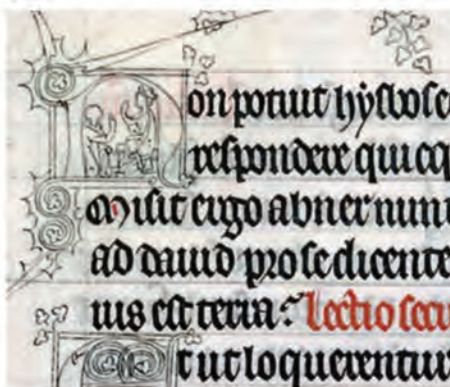 Non potuit hẏsbose
respondere quicq
Misit ergo abner nun
ad dauid pro se dicente
ius est terra: Lectio secu
t ut loquerentur